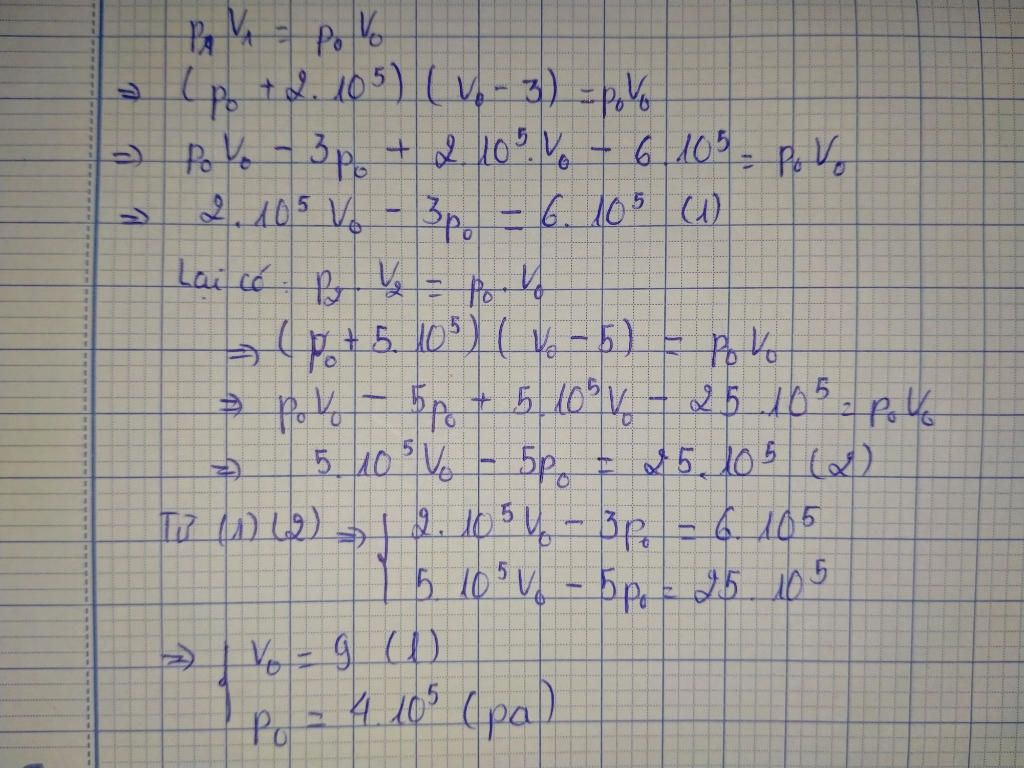 p₁V₁ = p₀V₀
⇒ (p₀ + 2.10⁵)(V₀ - 3) = p₀V₀
⇒ p₀V₀ - 3p₀ + 2.10⁵.V₀ - 6.10⁵ = p₀V₀
⇒ 2.10⁵V₀ - 3p₀ = 6.10⁵ (1)
Lại có: p₂.V₂ = p₀.V₀
⇒ (p₀ + 5.10⁵)(V₀ - 5) = p₀V₀
⇒ p₀V₀ - 5p₀ + 5.10⁵V₀ - 25.10⁵ = p₀V₀
⇒ 5.10⁵V₀ - 5p₀ = 25.10⁵ (2)
Từ (1)(2) ⇒ { 2.10⁵V₀ - 3p₀ = 6.10⁵
5.10⁵V₀ - 5p₀ = 25.10⁵
⇒ { V₀ = 9 (l)
p₀ = 4.10⁵ (pa)